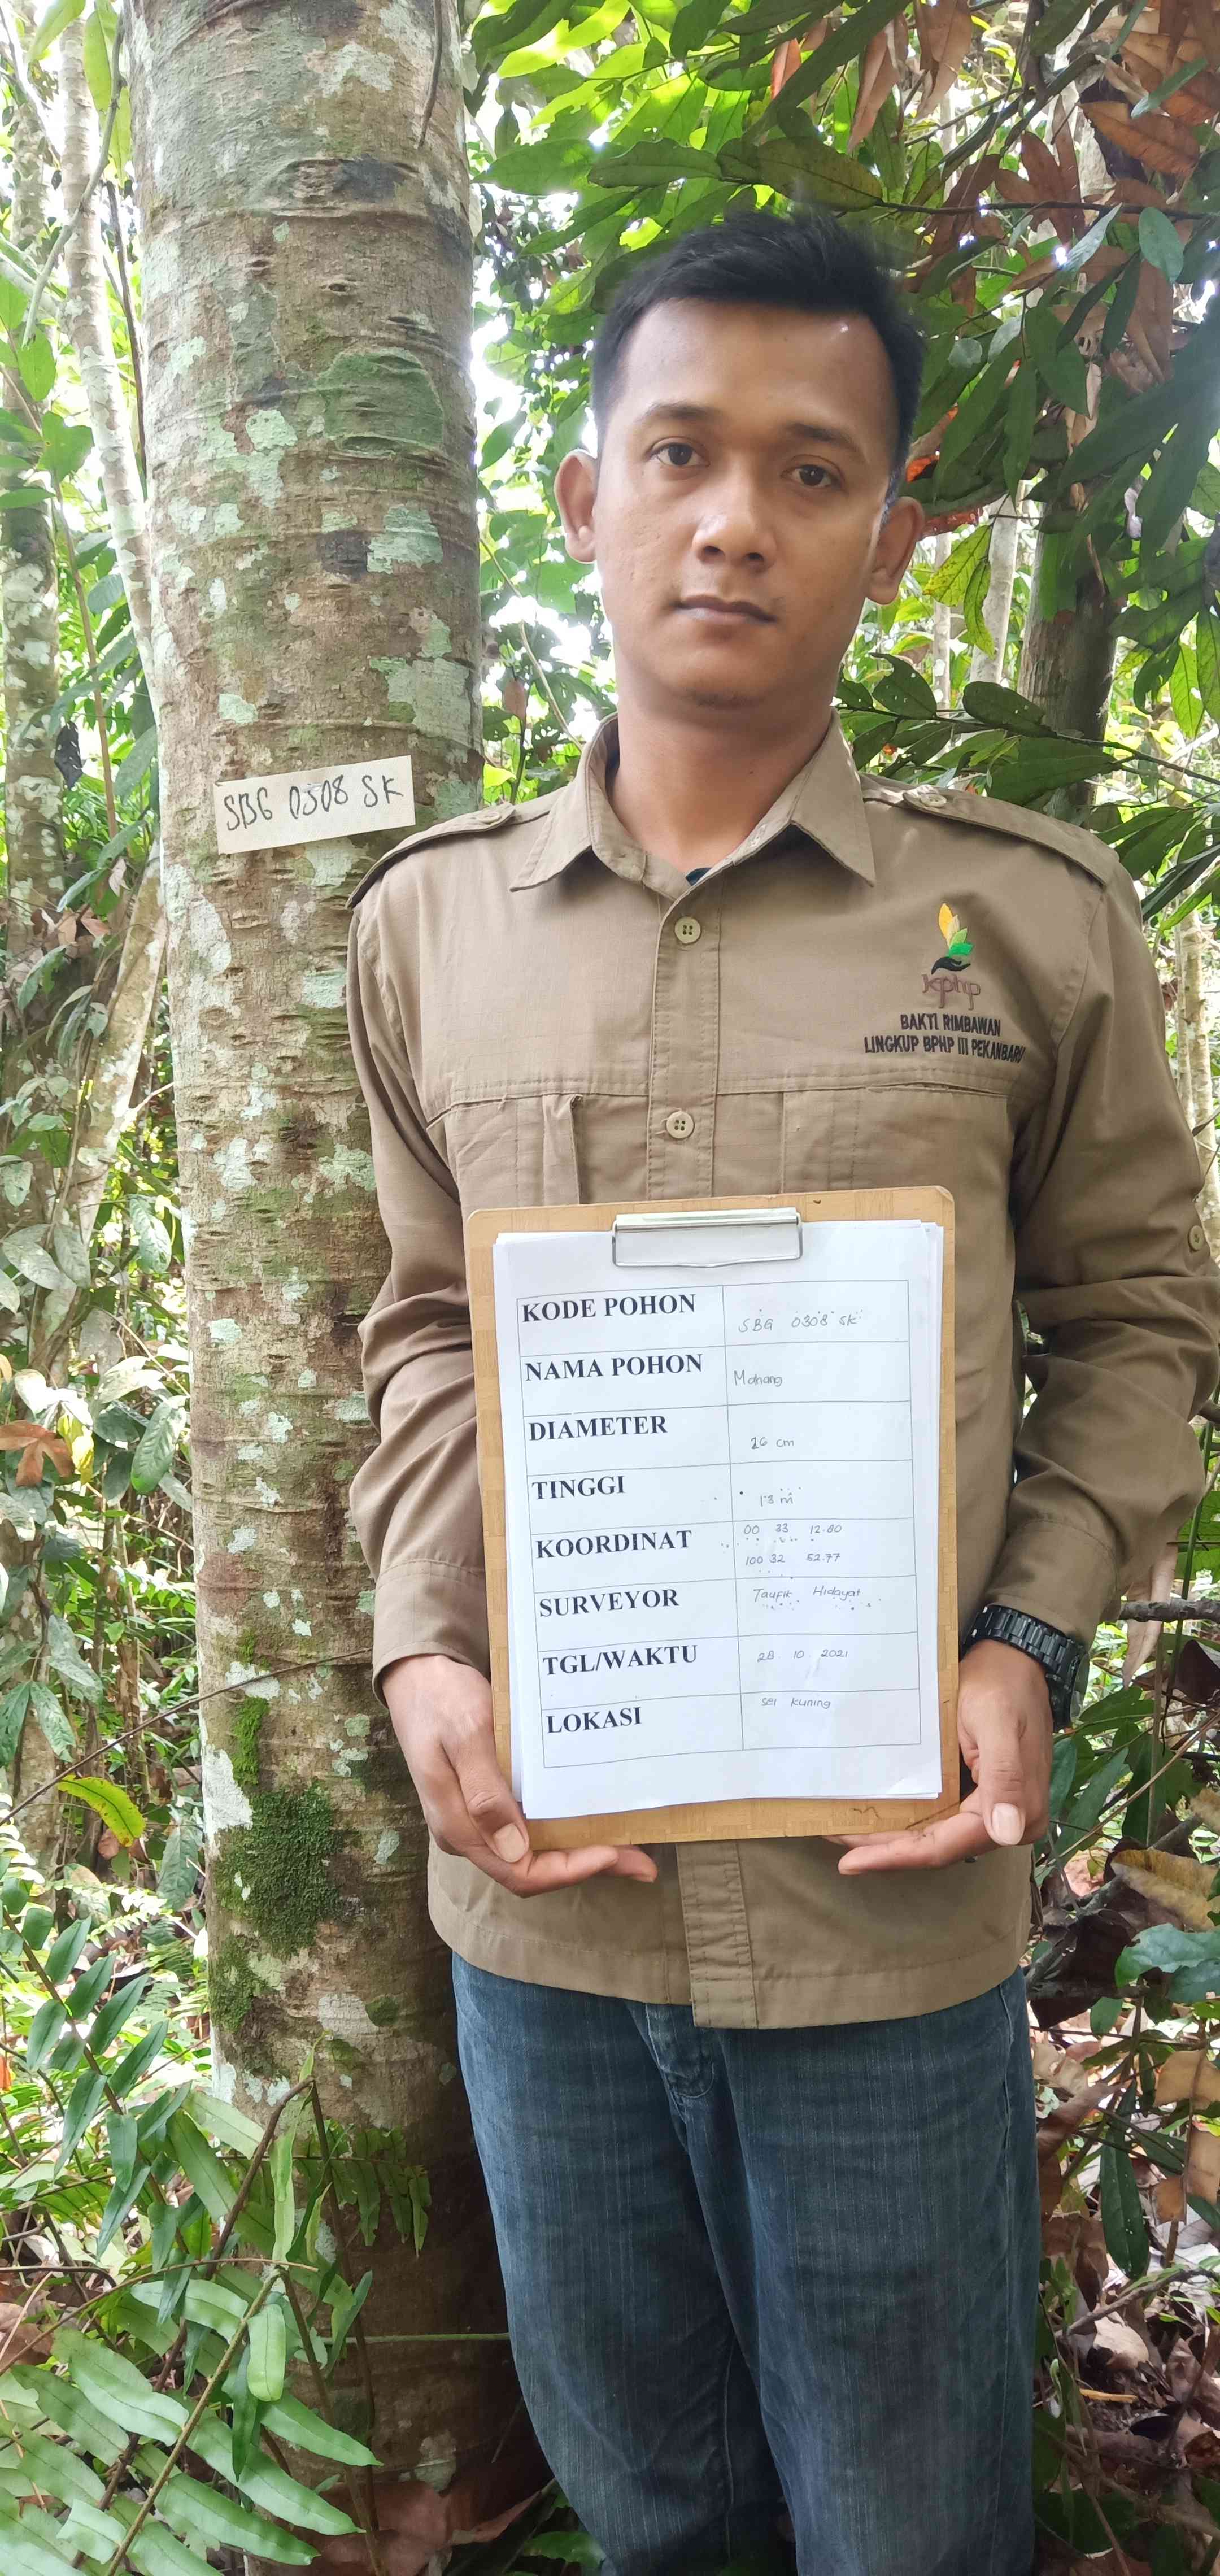 SBG 0308 SK
kphp
BAKTI RIMBAWAN
LINGKUP BPHP III PEKANBARU
KODE POHON SBG 0308 SK
NAMA POHON Mahang
DIAMETER 26 cm
TINGGI 18 m
KOORDINAT 00 33 12.80
100 32 52.77
SURVEYOR Taufik Hidayat
TGL/WAKTU 28 10 2021
LOKASI sei kuning